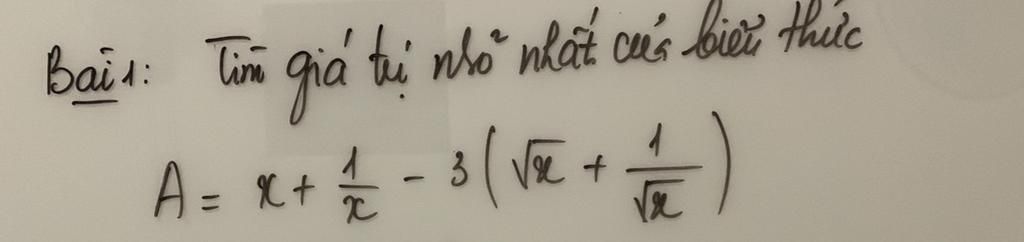 Bài 1: Tìm giá trị nhỏ nhất của biểu thức
A = x + 1/x - 3(√x + 1/√x)